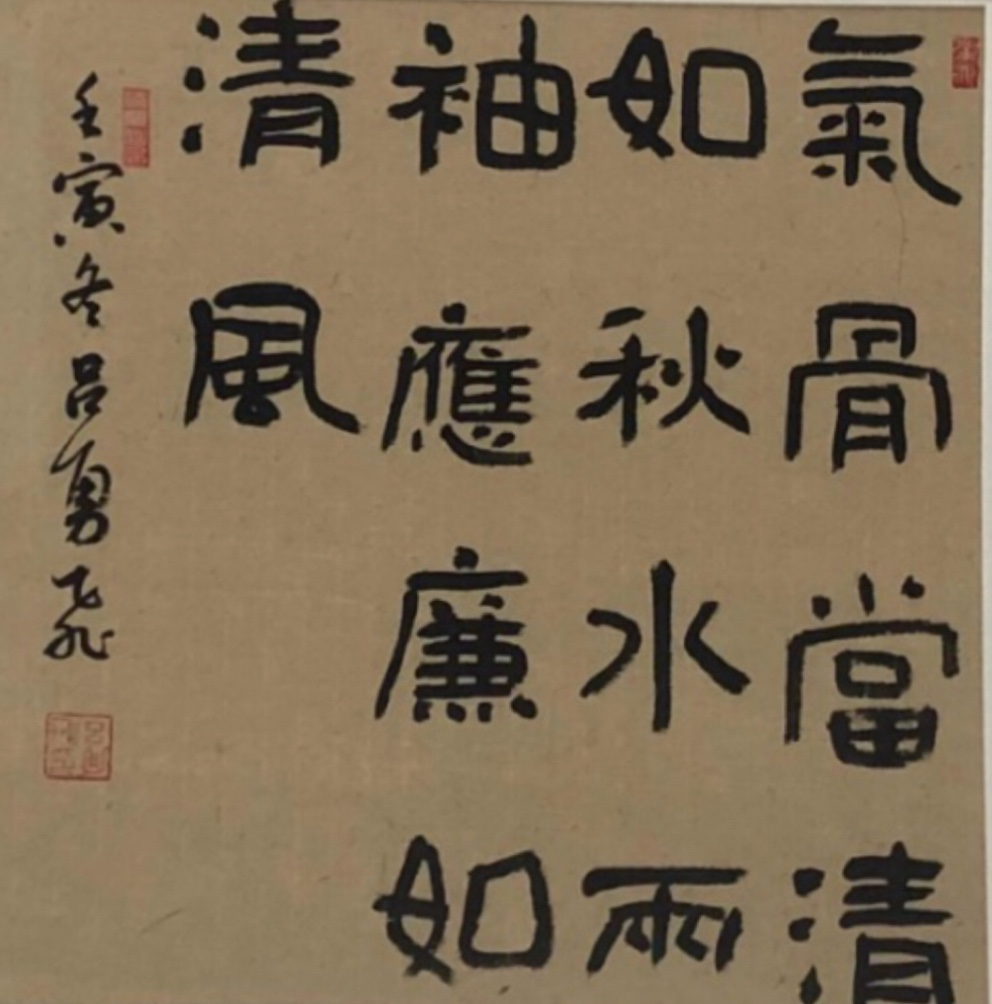 氣骨當清
如秋水兩
袖應廉如
清風
壬寅冬呂勇飛